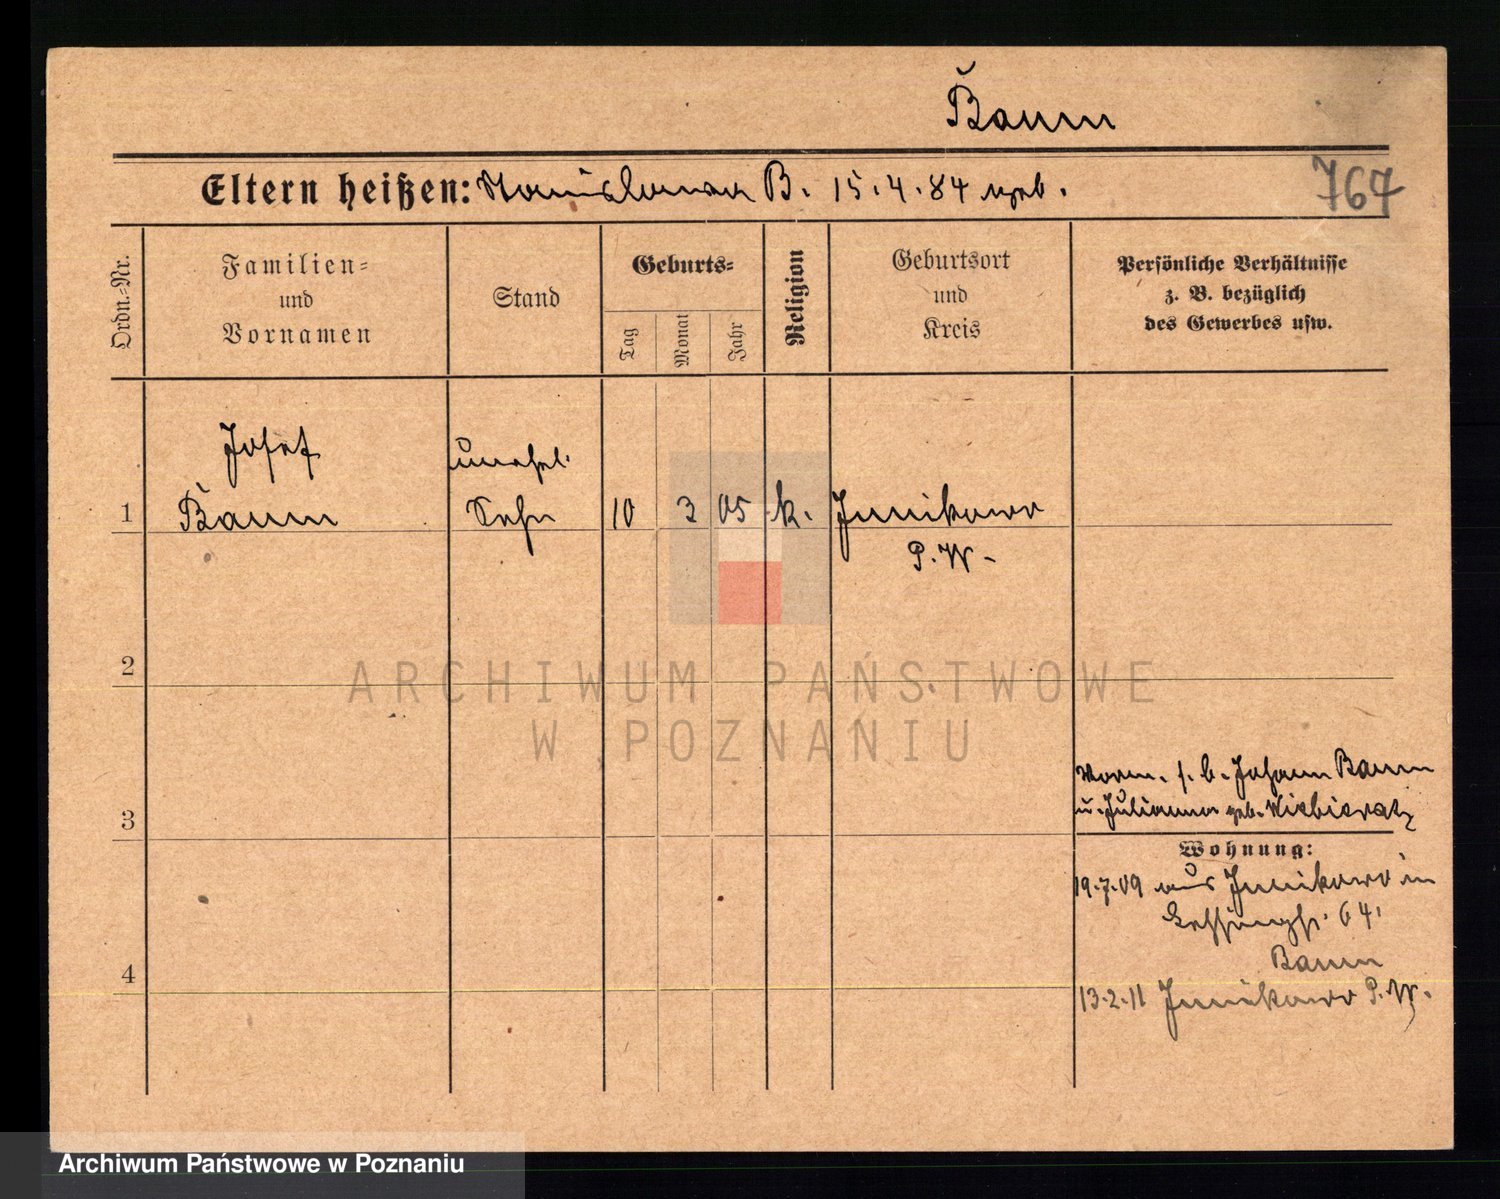 Baum
Eltern heißen: Stanislawa B. 15.4.84 geb.
764
Ordn.-Nr.
Familien-
und
Vornamen
Stand
Geburts-
Tag
Monat
Jahr
Religion
Geburtsort
und
Kreis
Persönliche Verhältnisse
z. B. bezüglich
des Gewerbes usw.
Josef
unehel.
1 Baum Sohn 10 3 05 k. Junikowo
P. W.
2
ARCHIWUM PAŃSTWOWE
W POZNANIU
Vorm. s. b. Johann Baum
u. Julianna geb.
3
Wohnung:
19.7.09 aus Junikowo in
Lessingst. 64.
Baum
4
13.2.11 Junikowo P. W.
Archiwum Państwowe w Poznaniu